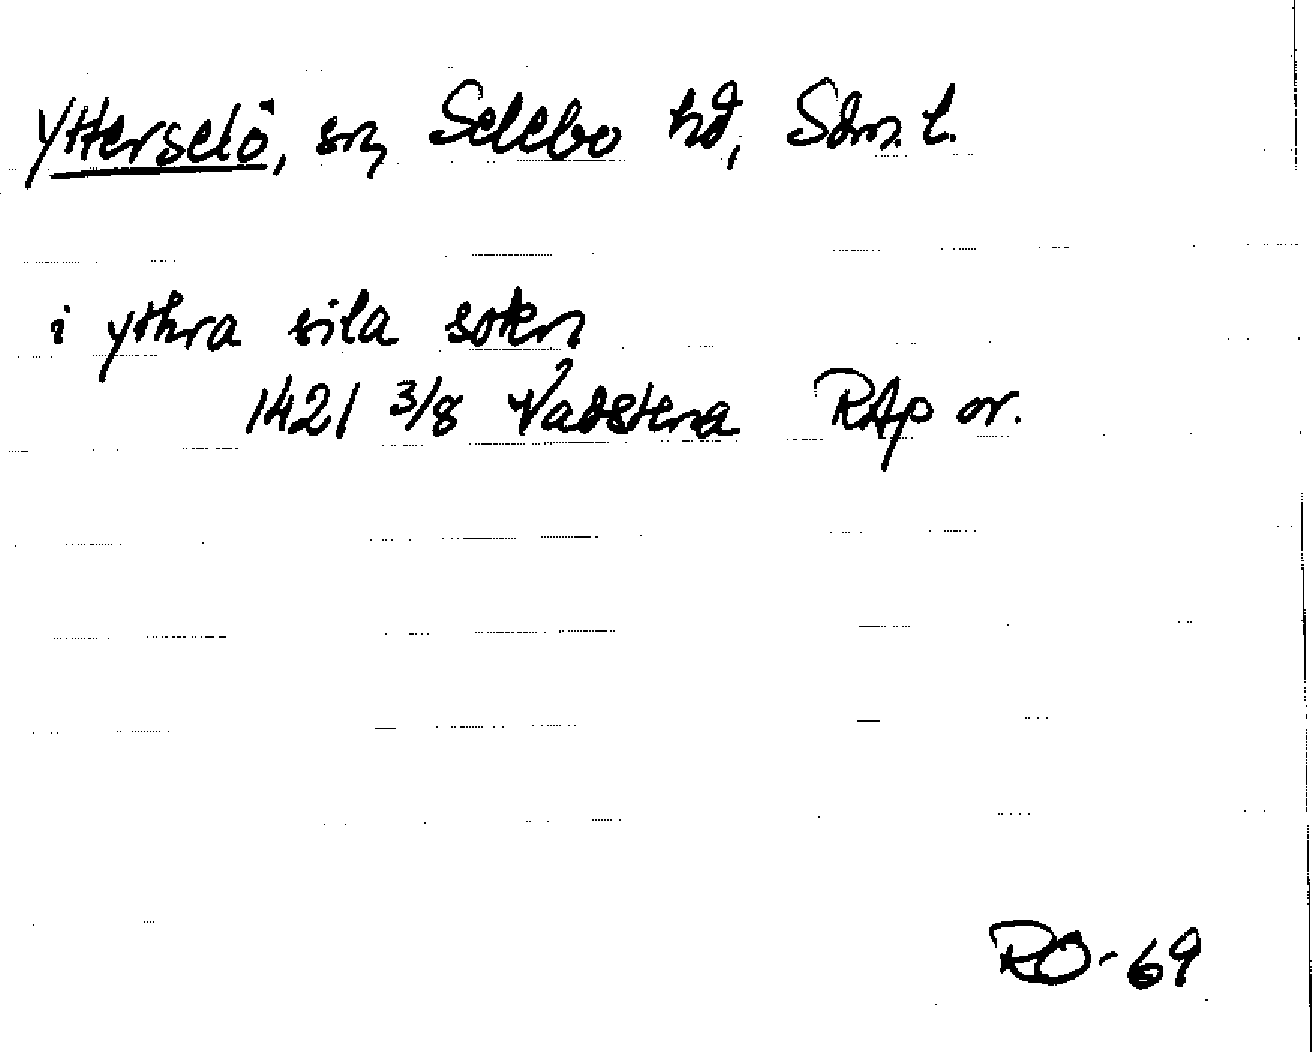 Ytterselö, sn, Selebo hd, Sdm. l.
i ythra sila sokn
1421 3/8 Vadstena RAp or.
RO-69